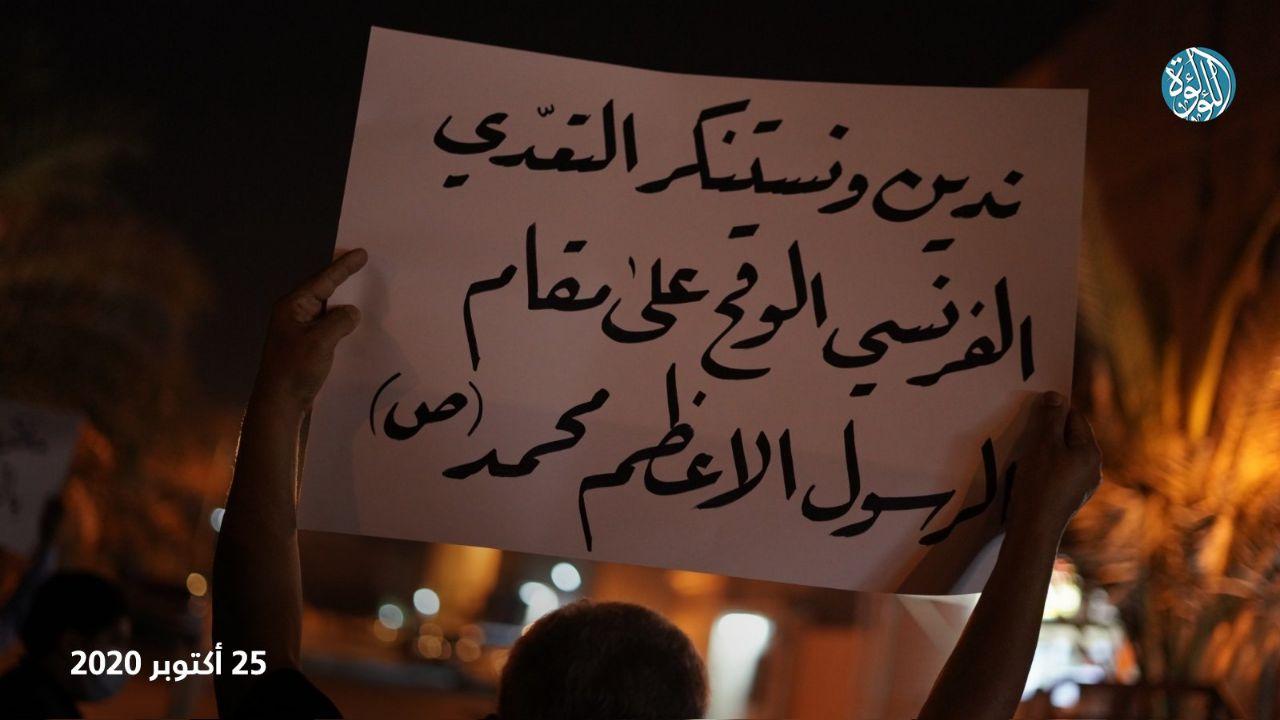 اللؤلؤة
ندين ونستنكر التعدّي
الفرنسي الوقح على مقام
الرسول الاعظم محمد (ص)
25 أكتوبر 2020